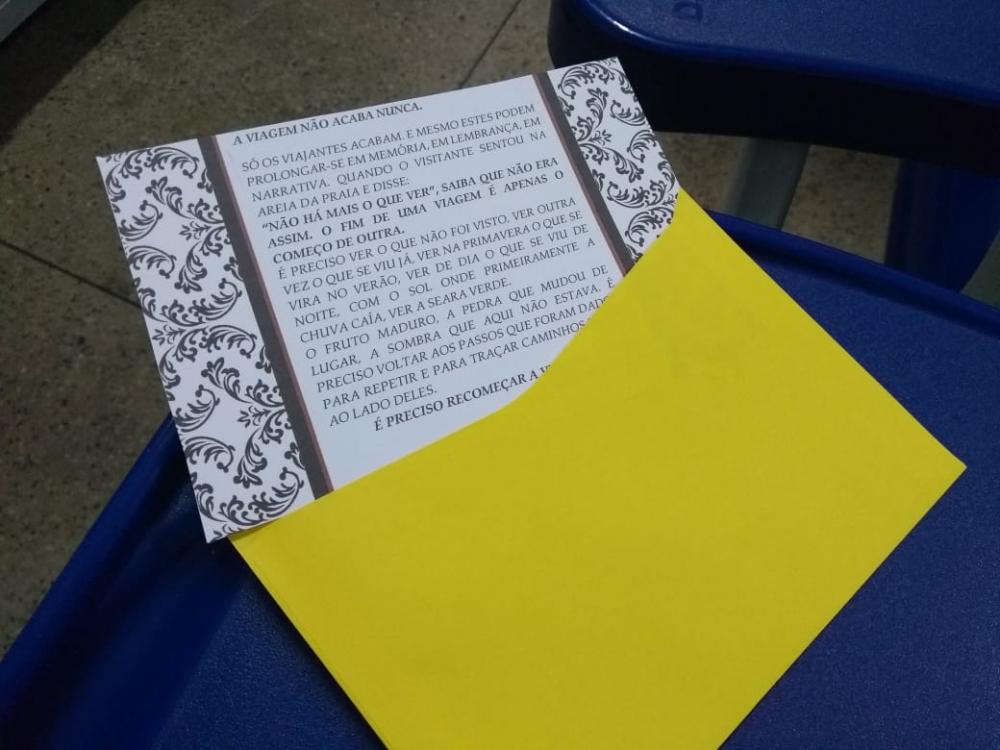 A VIAGEM NÃO ACABA NUNCA.
SÓ OS VIAJANTES ACABAM. E MESMO ESTES PODEM
PROLONGAR-SE EM MEMÓRIA, EM LEMBRANÇA, EM
NARRATIVA. QUANDO O VISITANTE SENTOU NA
AREIA DA PRAIA E DISSE:
"NÃO HÁ MAIS O QUE VER", SAIBA QUE NÃO ERA
ASSIM. O FIM DE UMA VIAGEM É APENAS O
COMEÇO DE OUTRA.
É PRECISO VER O QUE NÃO FOI VISTO, VER OUTRA
VEZ O QUE SE VIU JÁ, VER NA PRIMAVERA O QUE SE
VIRA NO VERÃO, VER DE DIA O QUE SE VIU DE
NOITE, COM O SOL ONDE PRIMEIRAMENTE A
CHUVA CAÍA, VER A SEARA VERDE,
O FRUTO MADURO, A PEDRA QUE MUDOU DE
LUGAR, A SOMBRA QUE AQUI NÃO ESTAVA. É
PRECISO VOLTAR AOS PASSOS QUE FORAM DADOS
PARA REPETIR E PARA TRAÇAR CAMINHOS
AO LADO DELES.
É PRECISO RECOMEÇAR A